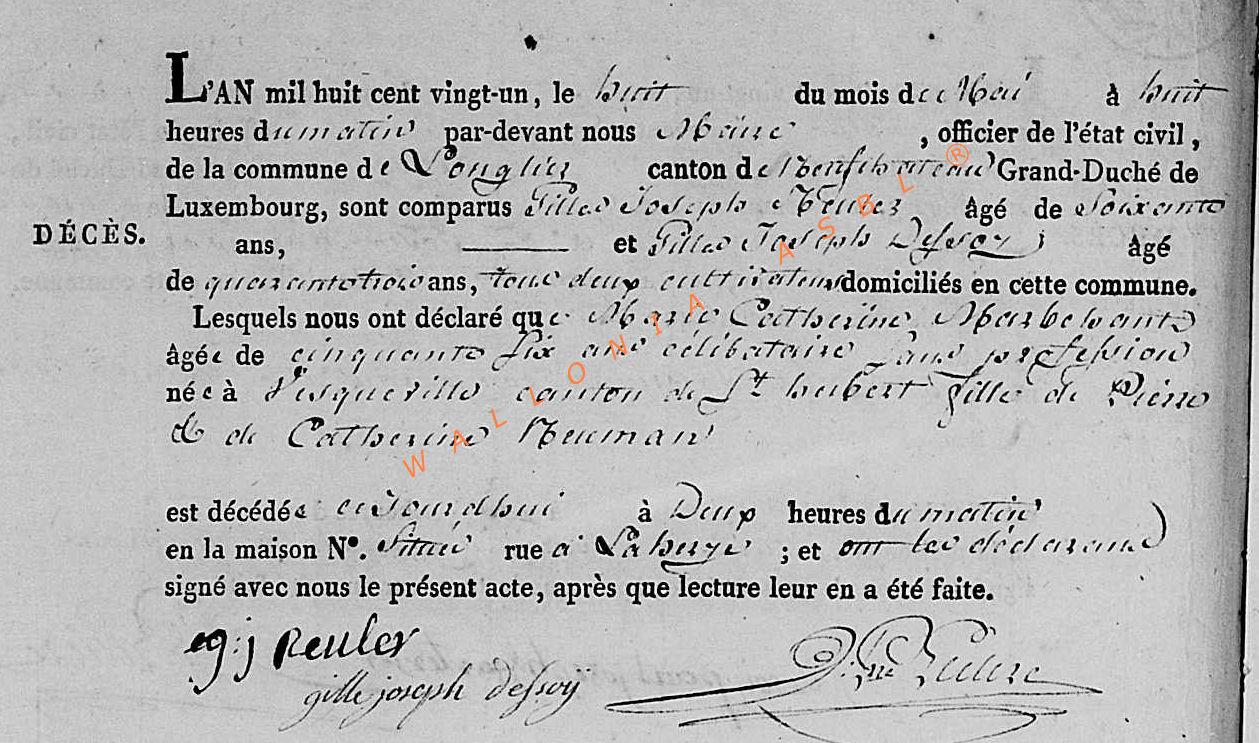 L'AN mil huit cent vingt-un, le huit du mois de Mai à huit
heures du matin par-devant nous Maire , officier de l'état civil,
de la commune de Longlier canton de Neufchateau Grand-Duché de
Luxembourg, sont comparus Gilles Joseph âgé de Soixante
DÉCÈS.
ans, et Gilles Joseph Dessoy âgé
de quarante trois ans, tous deux cultivateurs domiciliés en cette commune.
Lesquels nous ont déclaré que Marie Catherine Marbehante
âgée de cinquante six ans célibataire sans profession
née à Vesqueville canton de St hubert fille de Pierre
& de Catherine Neuman
est décédée cejourdhui à Deux heures du matin
en la maison N°. Située rue à Laherye ; et ont les déclarans
signé avec nous le présent acte, après que lecture leur en a été faite.
eg: j Reuler
gille joseph dessoÿ
WALLONIA ASBL ®